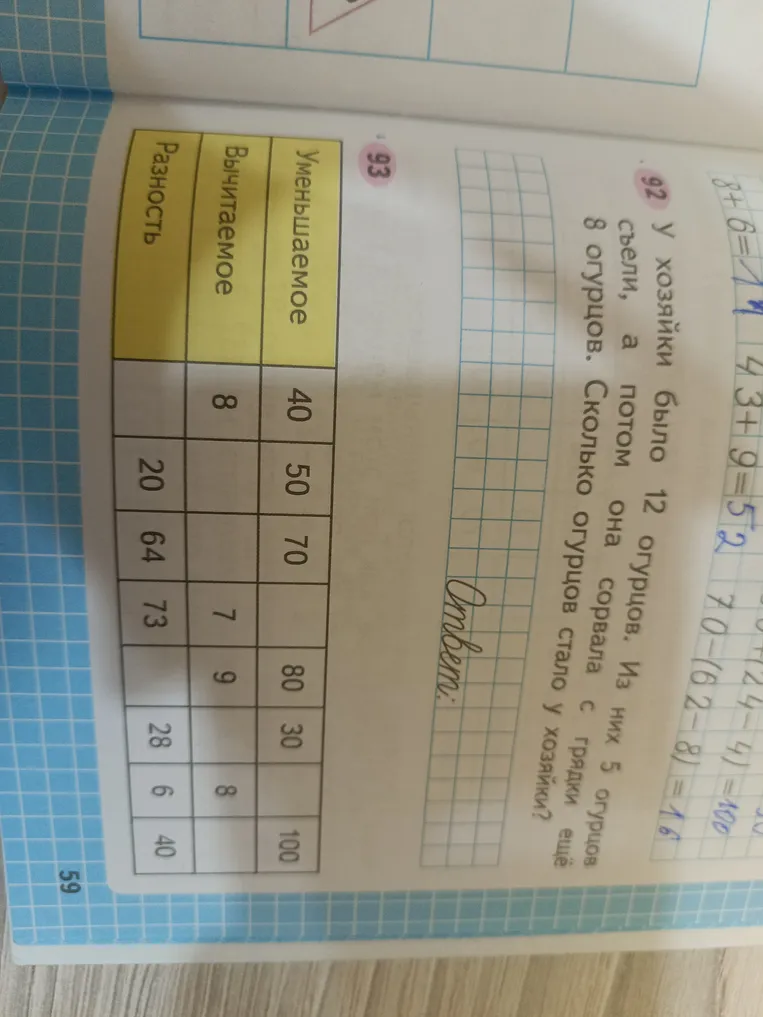 8+6=14 43+9=52 70-(62-8)=16
24-4)=100
92 У хозяйки было 12 огурцов. Из них 5 огурцов
съели, а потом она сорвала с грядки ещё
8 огурцов. Сколько огурцов стало у хозяйки?
Ответ:
93
Уменьшаемое 40 50 70 80 30 100
Вычитаемое 8 7 9 8
Разность 20 64 73 28 6 40
59